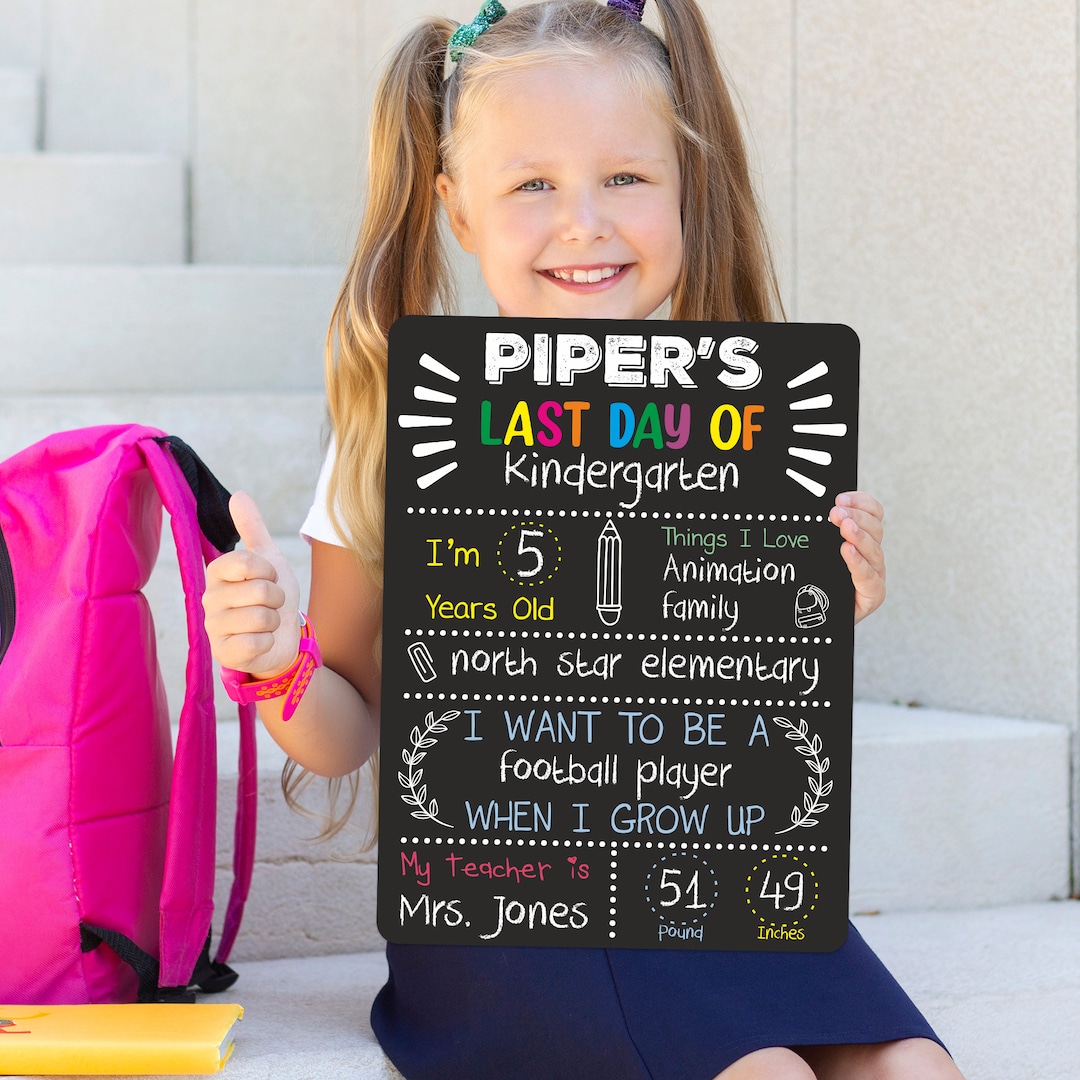 PIPER'S
LAST DAY OF
Kindergarten
I'm 5
Years Old
Things I Love
Animation
family
north star elementary
I WANT TO BE A
football player
WHEN I GROW UP
My Teacher is
Mrs. Jones
51
Pound
49
Inches